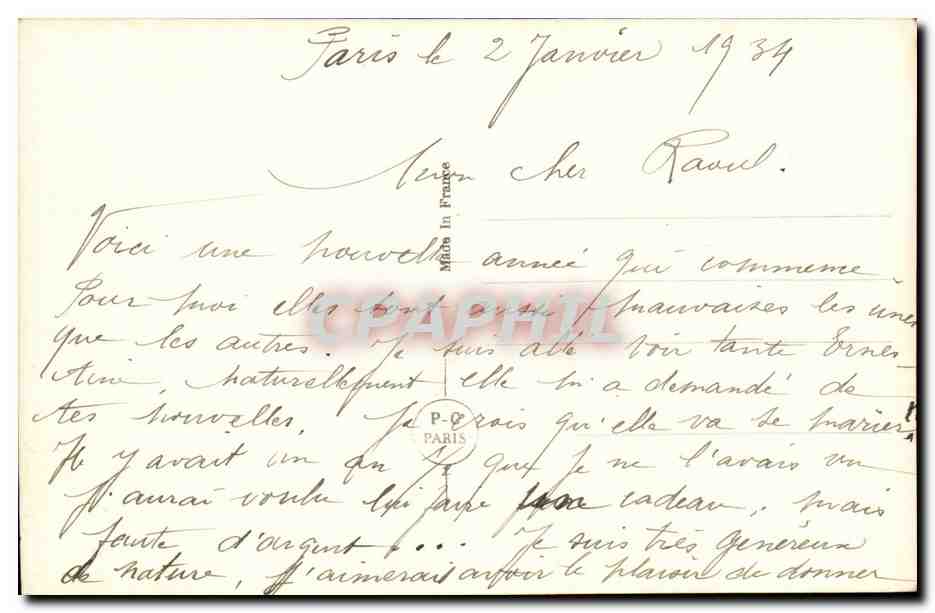 Paris le 2 Janvier 1934
Mon cher Raoul.
Made In France
Voici une nouvelle année qui commence
Pour moi elles sont aussi mauvaises les unes
CPAPHIL
que les autres. Je suis allé voir tante Ernes
tine, naturellement elle m'a demandé de
tes nouvelles. Je crois qu'elle va se marier!
P-C
PARIS
Il y avait un an que je ne l'avais vu
J'aurai voulu lui faire un cadeau, mais
faute d'argent.... Je suis très généreux
de nature, J'aimerai avoir le plaisir de donner